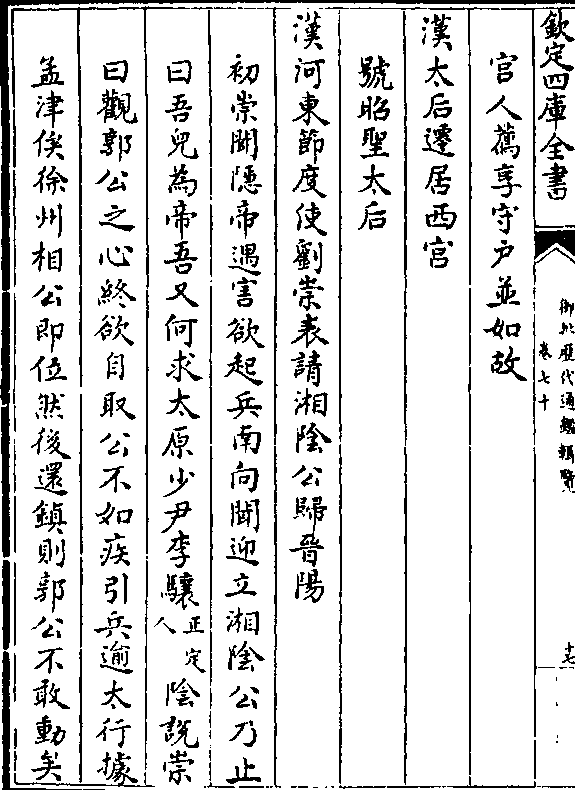 欽定四庫全書
御批歷代通鑑輯覽
卷七十
十七
官人薦享守户並如故
漢太后遷居西宫
號昭聖太后
漢河東節度使劉崇表請湘陰公歸晉陽
初崇聞隱帝遇害欲起兵南向聞迎立湘陰公乃止
曰吾兒為帝吾又何求太原少尹李驤正定人陰説崇
曰觀郭公之心終欲自取公不如疾引兵逾太行據
孟津俟徐州相公即位然後還鎮則郭公不敢動矣